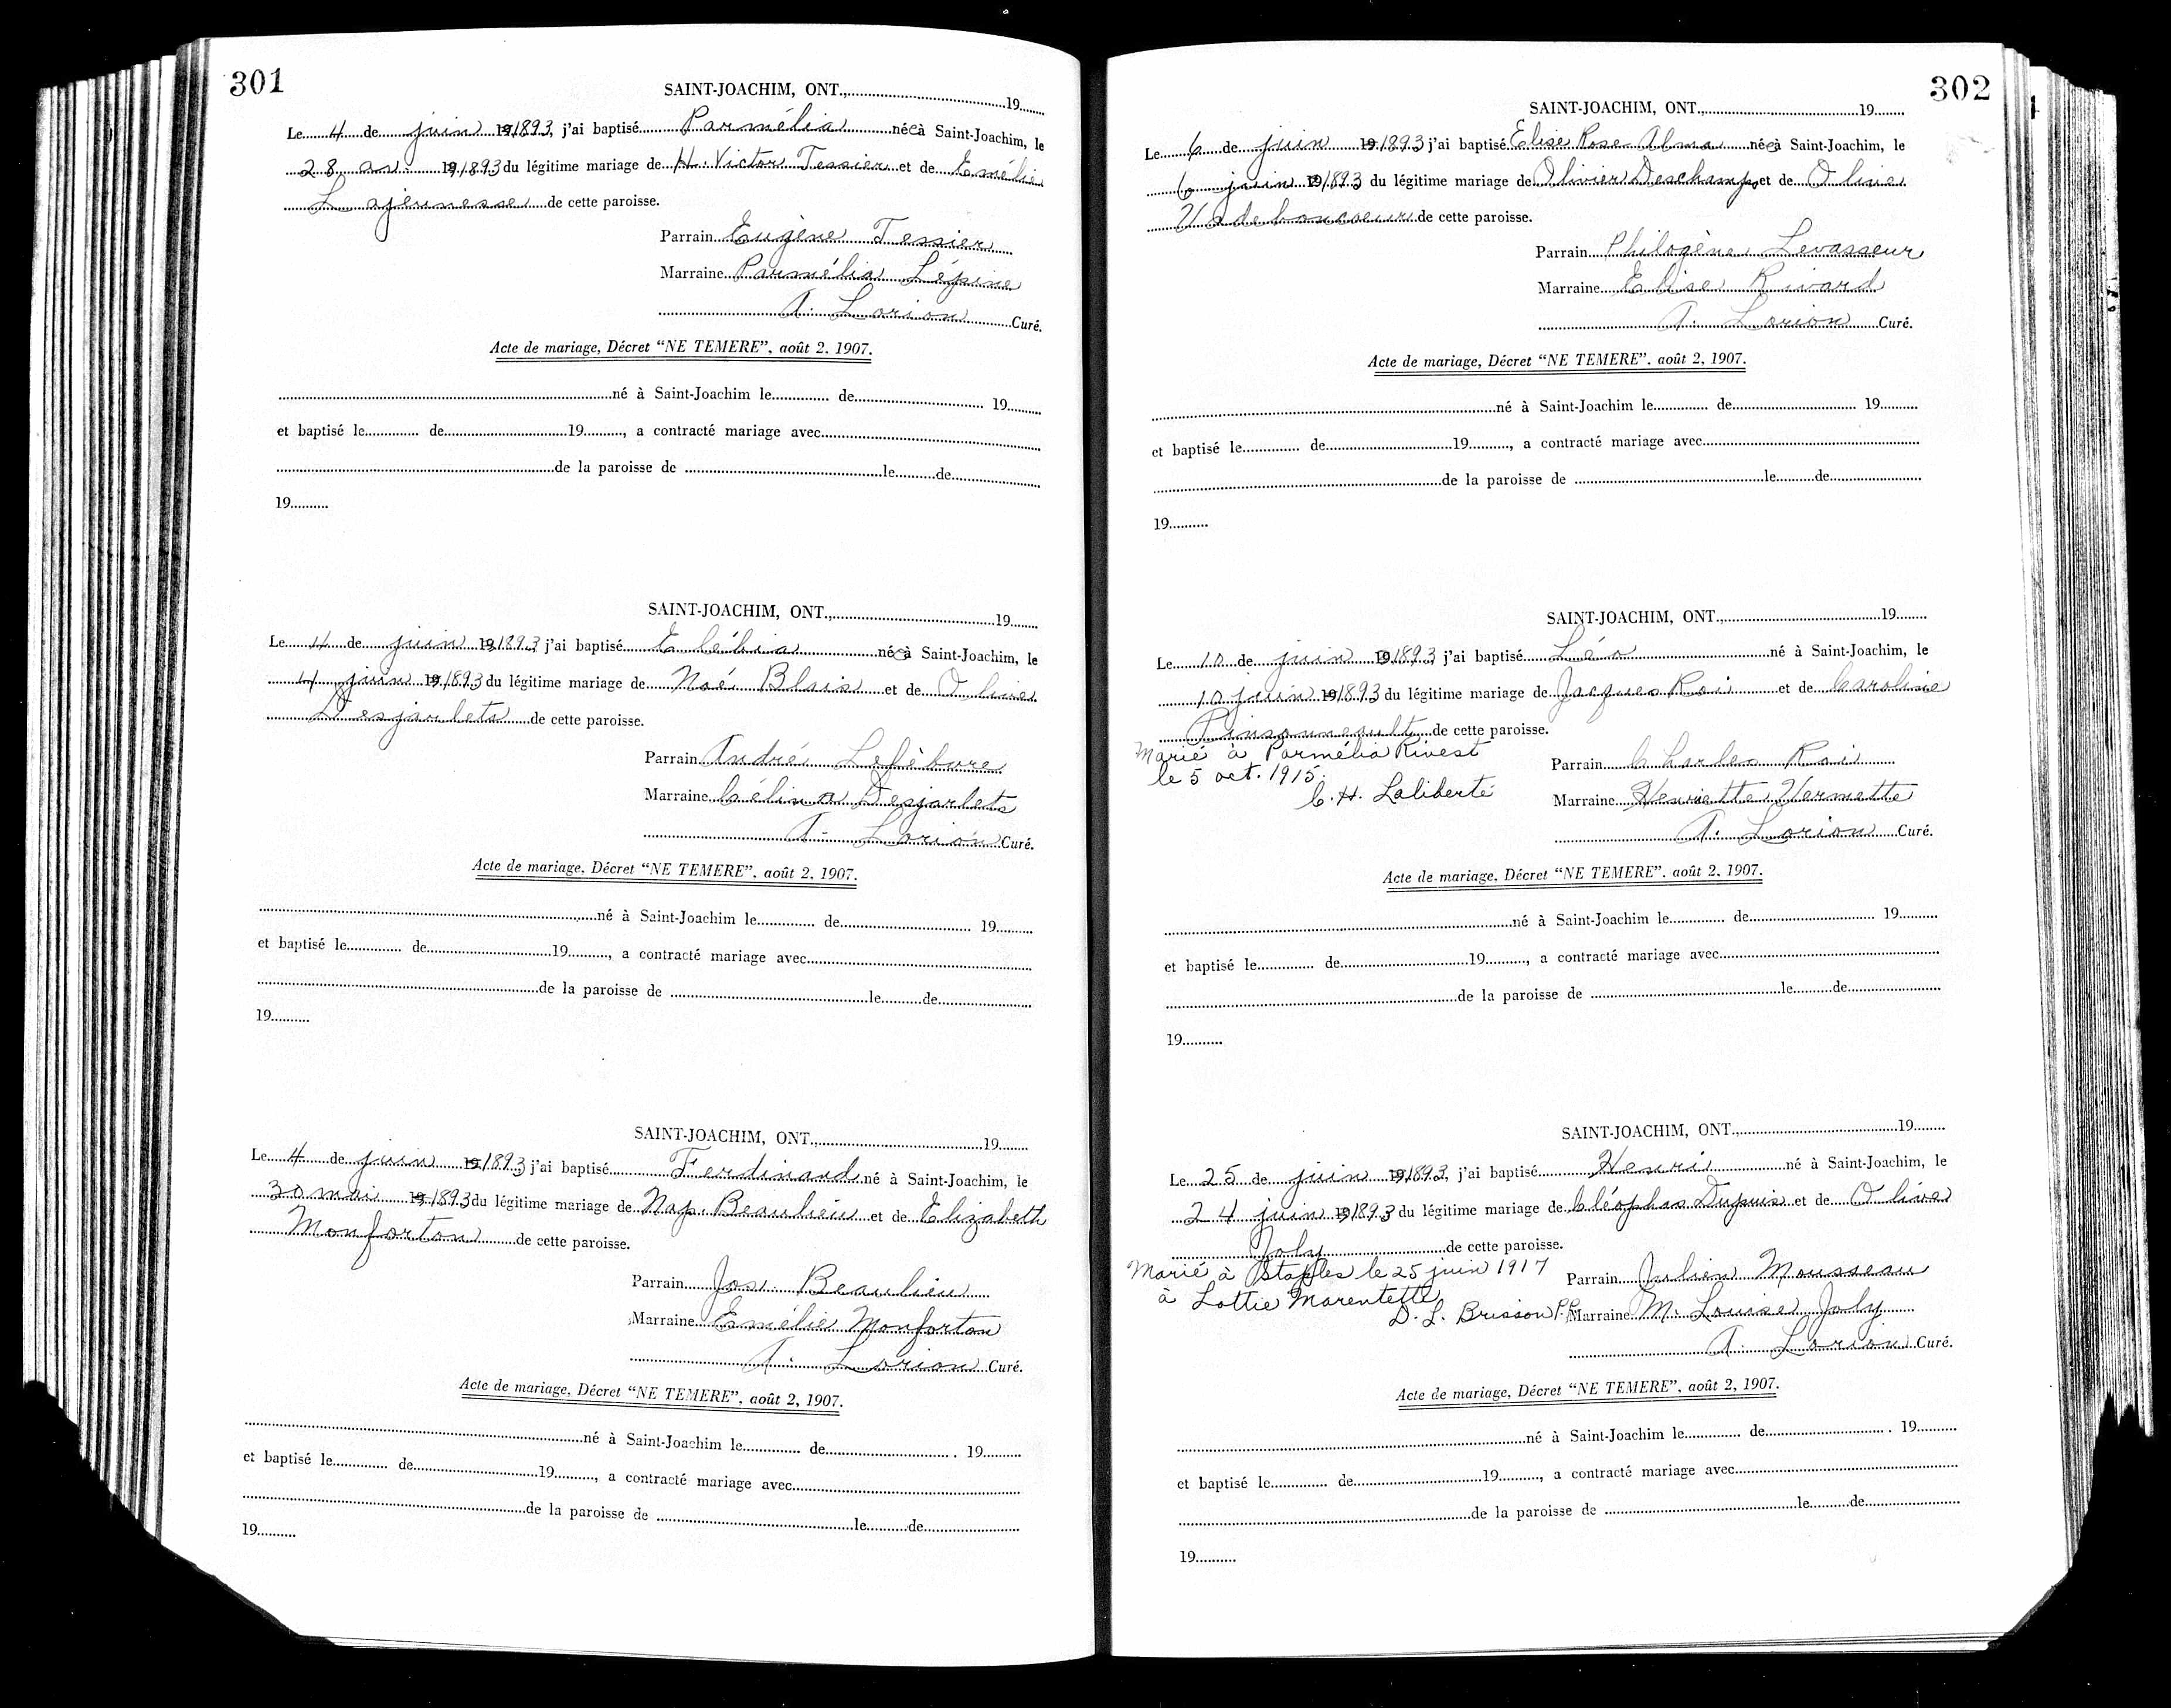 301
SAINT-JOACHIM, ONT.,..........19......
Le 4 de juin 19 1893, j'ai baptisé Parmélia née à Saint-Joachim, le
28 av. 19 1893 du légitime mariage de H. Victor Tessier et de Emélie
Lajeunesse de cette paroisse.
Parrain Eugène Tessier
Marraine Parmélia Lépine
A. Lorion Curé.
Acte de mariage, Décret "NE TEMERE", août 2, 1907.
..........né à Saint-Joachim le.......... de.......... 19..........
et baptisé le.......... de..........19.........., a contracté mariage avec..........
..........de la paroisse de ..........le..........de..........
19..........
SAINT-JOACHIM, ONT.,..........19......
Le 4 de juin 19 1893 j'ai baptisé née à Saint-Joachim, le
4 juin 19 1893 du légitime mariage de Noé Blais et de Olive
Desjarlets de cette paroisse.
Parrain André Lefèbvre
Marraine Célina Desjarlets
A. Lorion Curé.
Acte de mariage, Décret "NE TEMERE", août 2, 1907.
..........né à Saint-Joachim le.......... de.......... 19..........
et baptisé le.......... de..........19.........., a contracté mariage avec..........
..........de la paroisse de ..........le..........de..........
19..........
SAINT-JOACHIM, ONT.,..........19......
Le 4 de juin 19 1893 j'ai baptisé Ferdinand né à Saint-Joachim, le
30 mai 19 1893 du légitime mariage de Nap. Beaulieu et de Elizabeth
Monforton de cette paroisse.
Parrain Jos. Beaulieu
Marraine Emélie Monforton
A. Lorion Curé.
Acte de mariage, Décret "NE TEMERE", août 2, 1907.
..........né à Saint-Joachim le.......... de.......... 19..........
et baptisé le.......... de..........19.........., a contracté mariage avec..........
..........de la paroisse de ..........le..........de..........
19..........
302
SAINT-JOACHIM, ONT.,..........19......
Le 6 de juin 19 1893 j'ai baptisé Elise Rose Alma née à Saint-Joachim, le
6 juin 19 1893 du légitime mariage de Olivier Deschamps et de Olive
Vadeboncoeur de cette paroisse.
Parrain Philogène Levasseur
Marraine Elise Rivard
A. Lorion Curé.
Acte de mariage, Décret "NE TEMERE", août 2, 1907.
..........né à Saint-Joachim le.......... de.......... 19..........
et baptisé le.......... de..........19.........., a contracté mariage avec..........
..........de la paroisse de ..........le..........de..........
19..........
SAINT-JOACHIM, ONT.,..........19......
Le 10 de juin 19 1893 j'ai baptisé Léo né à Saint-Joachim, le
10 juin 19 1893 du légitime mariage de Jacques Roi et de Caroline
Pinsonneault de cette paroisse.
Marié à Parmélia Rivest
le 5 oct. 1915.
C. H. Laliberté
Parrain Charles Roi
Marraine Henriette Vermette
A. Lorion Curé.
Acte de mariage, Décret "NE TEMERE", août 2, 1907.
..........né à Saint-Joachim le.......... de.......... 19..........
et baptisé le.......... de..........19.........., a contracté mariage avec..........
..........de la paroisse de ..........le..........de..........
19..........
SAINT-JOACHIM, ONT.,..........19......
Le 25 de juin 19 1893, j'ai baptisé Henri né à Saint-Joachim, le
24 juin 19 1893 du légitime mariage de Cléophas Dupuis et de Olive
Joly de cette paroisse.
Marié à Staples le 25 juin 1917
à Lottie Marentette
D. L. Brisson P.P.
Parrain Julien Mousseau
Marraine M. Louise Joly
A. Lorion Curé.
Acte de mariage, Décret "NE TEMERE", août 2, 1907.
..........né à Saint-Joachim le.......... de.......... 19..........
et baptisé le.......... de..........19.........., a contracté mariage avec..........
..........de la paroisse de ..........le..........de..........
19..........